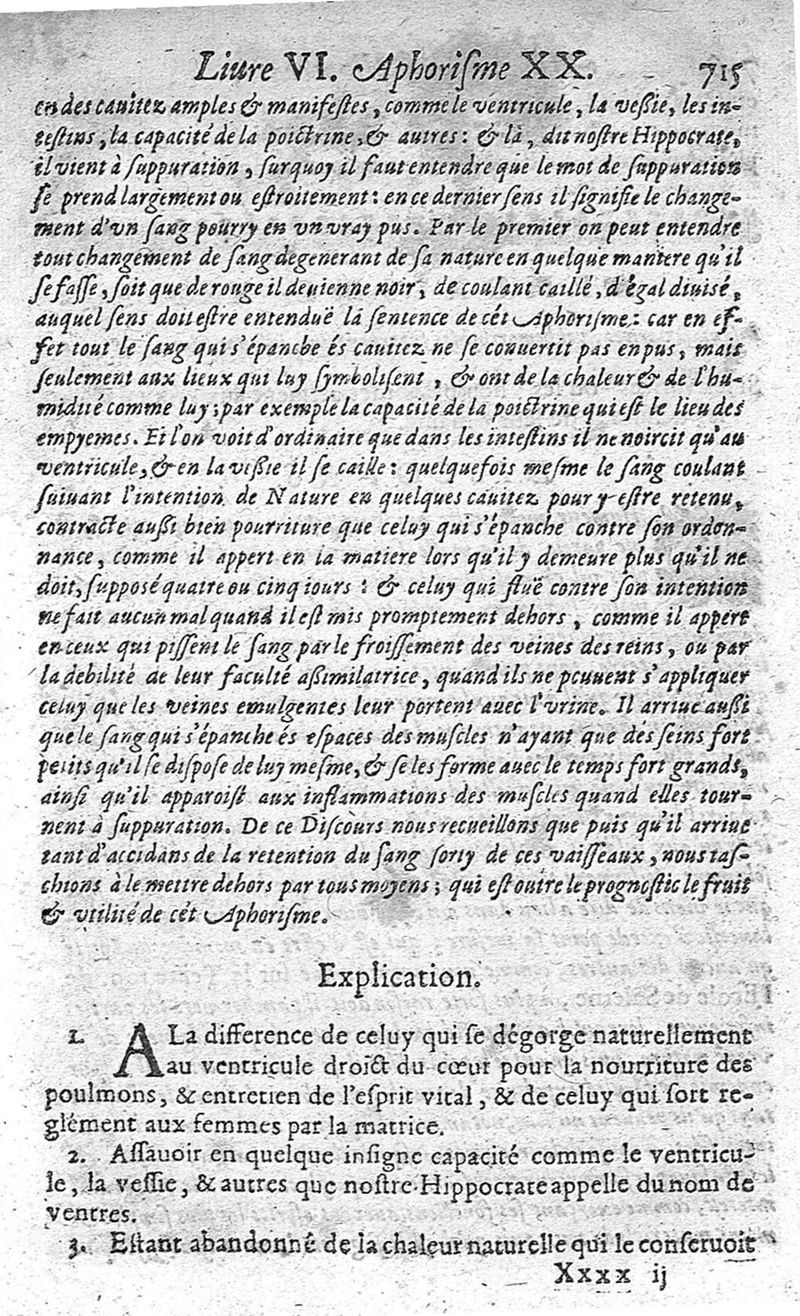 Liure VI. Aphoriſme XX. 715
en des cauitez amples & manifeſtes, comme le ventricule, la veßie, les in-
teſtins, la capacité de la poictrine, & autres: & là, dit noſtre Hippocrate,
il vient à ſuppuration, ſurquoy il faut entendre que le mot de ſuppuration
ſe prend largement ou eſtroitement: en ce dernier ſens il ſignifie le change-
ment d'vn ſang pourry en vn vray pus. Par le premier on peut entendre
tout changement de ſang degenerant de ſa nature en quelque maniere qu'il
ſe faſſe, ſoit que de rouge il deuienne noir, de coulant caillé, d'égal diuisé,
auquel ſens doit eſtre entenduë la ſentence de cét Aphoriſme: car en ef-
fet tout le ſang qui s'épanche és cauitez ne ſe conuertit pas en pus, mais
ſeulement aux lieux qui luy ſymboliſent, & ont de la chaleur & de l'hu-
midité comme luy; par exemple la capacité de la poictrine qui eſt le lieu des
empyemes. Et l'on voit d'ordinaire que dans les inteſtins il ne noircit qu'au
ventricule, & en la veßie il ſe caille: quelquefois meſme le ſang coulant
ſuiuant l'intention de Nature en quelques cauitez pour y eſtre retenu,
contracte außi bien pourriture que celuy qui s'épanche contre ſon ordon-
nance, comme il appert en la matiere lors qu'il y demeure plus qu'il ne
doit, ſupposé quatre ou cinq iours: & celuy qui fluë contre ſon intention
ne fait aucun mal quand il eſt mis promptement dehors, comme il appert
en ceux qui piſſent le ſang par le froiſſement des veines des reins, ou par
la debilité de leur faculté aßimilatrice, quand ils ne peuuent s'appliquer
celuy que les veines emulgentes leur portent auec l'vrine. Il arriue außi
que le ſang qui s'épanche és eſpaces des muſcles n'ayant que des ſeins fort
petits qu'il ſe diſpoſe de luy meſme, & ſe les forme auec le temps fort grands,
ainſi qu'il apparoiſt aux inflammations des muſcles quand elles tour-
nent à ſuppuration. De ce Diſcours nous recueillons que puis qu'il arriue
tant d'accidans de la retention du ſang ſorty de ces vaiſſeaux, nous taſ-
chions à le mettre dehors par tous moyens; qui eſt outre le prognoſtic le fruit
& vtilité de cét Aphoriſme.
Explication.
1. A La difference de celuy qui ſe dégorge naturellement
au ventricule droict du cœur pour la nourriture des
poulmons, & entretien de l'eſprit vital, & de celuy qui ſort re-
glément aux femmes par la matrice.
2. Aſſauoir en quelque inſigne capacité comme le ventricu-
le, la veſſie, & autres que noſtre Hippocrate appelle du nom de
ventres.
3. Eſtant abandonné de la chaleur naturelle qui le conſeruoit
Xxxx ij